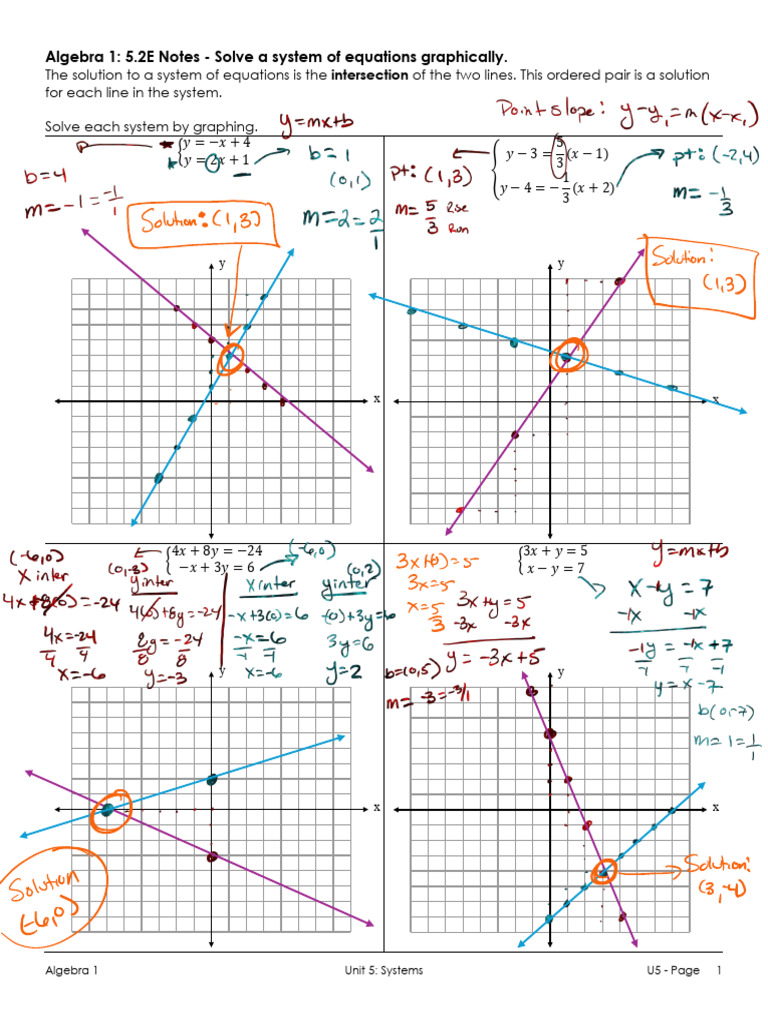 Algebra 1: 5.2E Notes - Solve a system of equations graphically.
The solution to a system of equations is the intersection of the two lines. This ordered pair is a solution
for each line in the system.
Point slope: y-y₁=m(x-x₁)
Solve each system by graphing. y=mx+b
y = −x + 4
y = 2x + 1
b=4
m=-1=-1/1
b=1
(0,1)
m=2=2/1
Solution: (1,3)
y
x
y − 3 = 5/3(x − 1)
y − 4 = −1/3(x + 2)
pt: (1,3)
m= 5/3 Rise Run
pt: (-2,4)
m= -1/3
Solution:
(1,3)
y
x
4x + 8y = −24
−x + 3y = 6
(-6,0)
x inter
4x+8(0)=-24
4x=-24
4 4
x=-6
(0,-3)
y inter
4(0)+8y=-24
8y=-24
8 8
y=-3
(-6,0)
x inter
-x+3(0)=6
-x=6
-1 -1
x=-6
(0,2)
y inter
-(0)+3y=6
3y=6
y=2
y
x
Solution
(-6,0)
3x + y = 5
x − y = 7
y=mx+b
3x+(0)=5
3x=5
x=5/3
3x+y=5
-3x -3x
y=-3x+5
b=(0,5)
m=-3=-3/1
x-y=7
-1x -1x
-1y=-1x+7
-1 -1 -1
y=x-7
b(0,-7)
m=1=1/1
y
x
Solution:
(3,-4)
Algebra 1 Unit 5: Systems U5 - Page 1